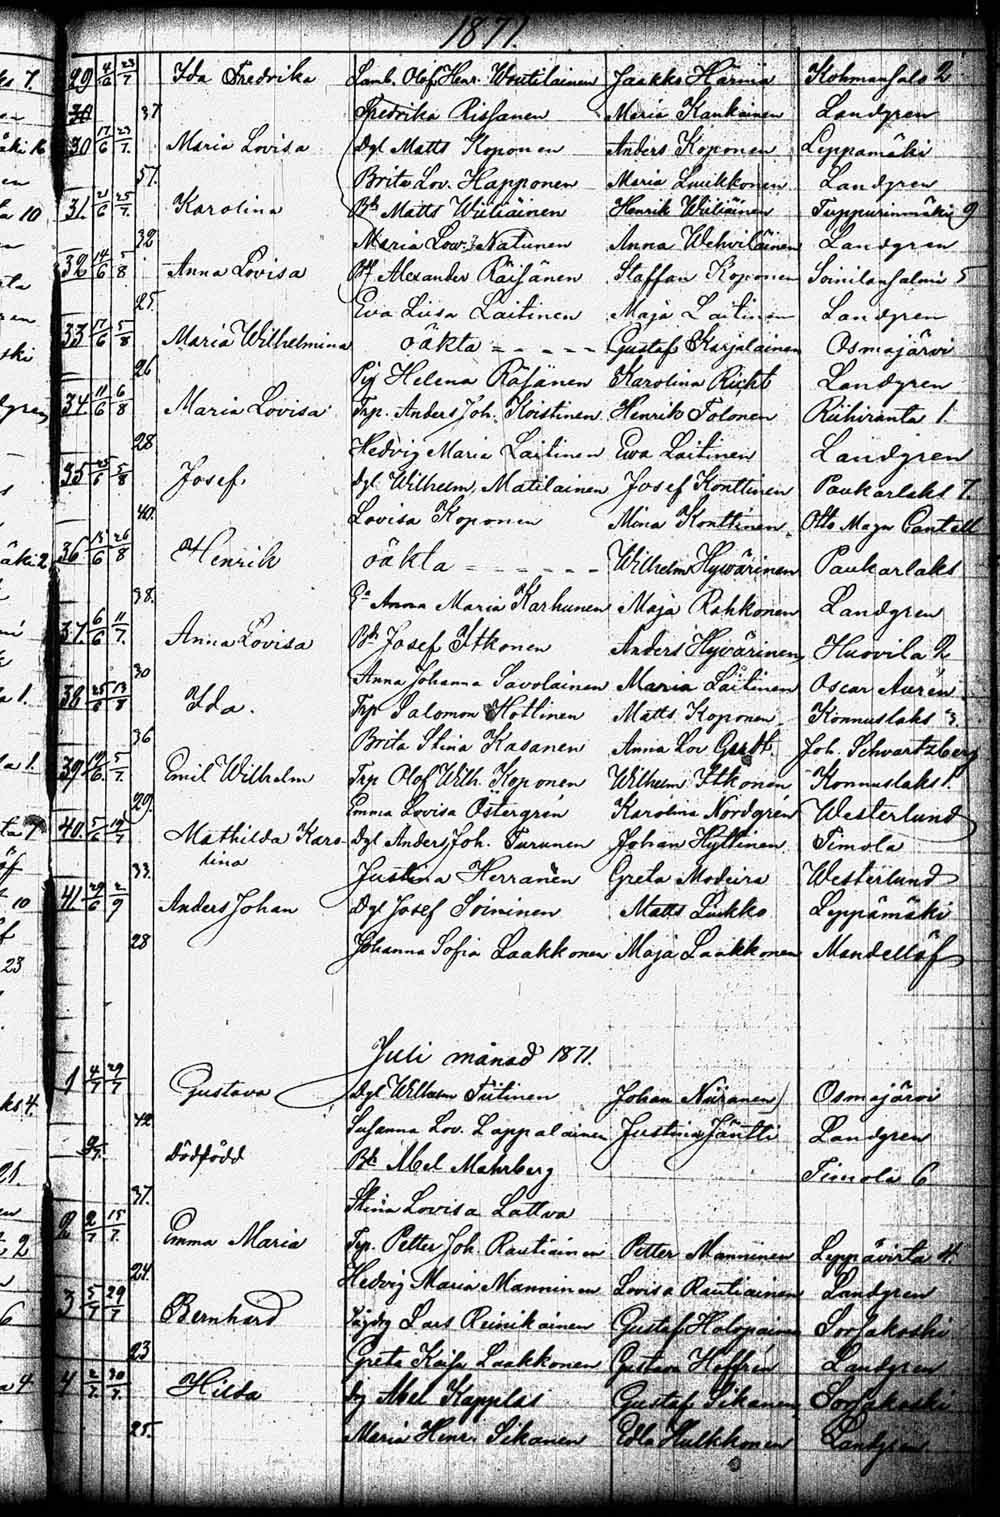 1871.
29 4/6 23/7 Ida Fredrika Lamb. Olof Henr. Woutilainen Jaakko Härmä Kohmansalo 2
37 Fredrika Rissanen Maria Kaukainen Landgren
30 17/6 23/7. Maria Lovisa Dgl Matts Koponen Anders Koponen Leppämäki
37. Brita Lov. Happonen Maria Luukkonen Landgren
31. 21/6 25/7. Karolina Bd Matts Wiiliäinen Henrik Wiiliäinen Tuppurinmäki 9
32 Maria Lov. Natunen Anna Wehviläinen Landgren
32 14/6 5/8 Anna Lovisa Alexander Räisänen Staffan Koponen Soinilansalmi 5
25. Eva Liisa Laitinen Maja Laitinen Landgren
33 17/6 5/8 Maria Wilhelmina oäkta - - - - Gustaf Karjalainen Osmajärvi
26 Pig Helena Räsänen Karolina Richt Landgren
34 11/6 6/8 Maria Lovisa Trp. Anders Joh. Koistinen Henrik Tolonen Riihiranta 1.
28 Hedvig Maria Laitinen Ewa Laitinen Landgren
35 25/6 5/8 Josef. Dgl. Wilhelm Matilainen Josef Konttinen Paukarlaks 7.
40. Lovisa Koponen Mina Konttinen Otto Magn Cantell
36 13/6 26/8 Henrik oäkta - - - - - Wilhelm Hywärinen Paukarlaks
38. Anna Maria Karhunen Maja Rahkonen Landgren
37. 6/6 11/7. Anna Lovisa Bd Josef Itkonen Anders Hyvärinen Huovila 2
30 Anna Johanna Savolainen Maria Laitinen Oscar Aurén
38 25/6 13/8 Ida. Trp Salomon Hottinen Matts Koponen Konnuslaks 3.
36 Brita Stina Kasanen Anna Lov Joh. Schvartzberg
39 14/6. 5/7. Emil Wilhelm Trp Olof Wilh. Koponen Wilhelm Itkonen Konnuslaks 1.
29. Emma Lovisa Östergrén Karolina Nordgrén Westerlund
40. 5/6 14/7. Mathilda Karo- Dgl Anders Joh. Turunen Johan Hyttinen Timola
lina
33. Justina Herranen Greta Modeira Westerlund
41 29/6 2/9 Anders Johan Dgl Josef Soininen Matts Liukko Leppämäki
28 Johanna Sofia Laakkonen Maja Laakkonen Mandellöf
Juli månad 1871.
1 4/7 29/7 Gustava Dgl Wilhelm Tiitinen Johan Niiranen Osmajärvi
42 Susanna Lov. Lappalainen Justina Jäntti Landgren
9/7. dödfödd Bd Abel Mahrberg Timola 6
37. Stina Lovisa Lattva
2 2/7 15/7. Emma Maria Trp. Petter Joh. Rautiainen Petter Manninen Leppävirta 4.
24. Hedvig Maria Manninen Lovisa Rautiainen Landgren
3 5/7 29/7 Bernhard Lars Reinikainen Gustaf Holopainen Sorsakoski
23 Greta Kaisa Laakkonen Gustava Hoffrén Landgren
4 2/7. 30/7. Hilda Abel Kapplas Gustaf Sikanen Sorsakoski
25. Maria Henr. Sikanen Edla Hulkkonen Landgren